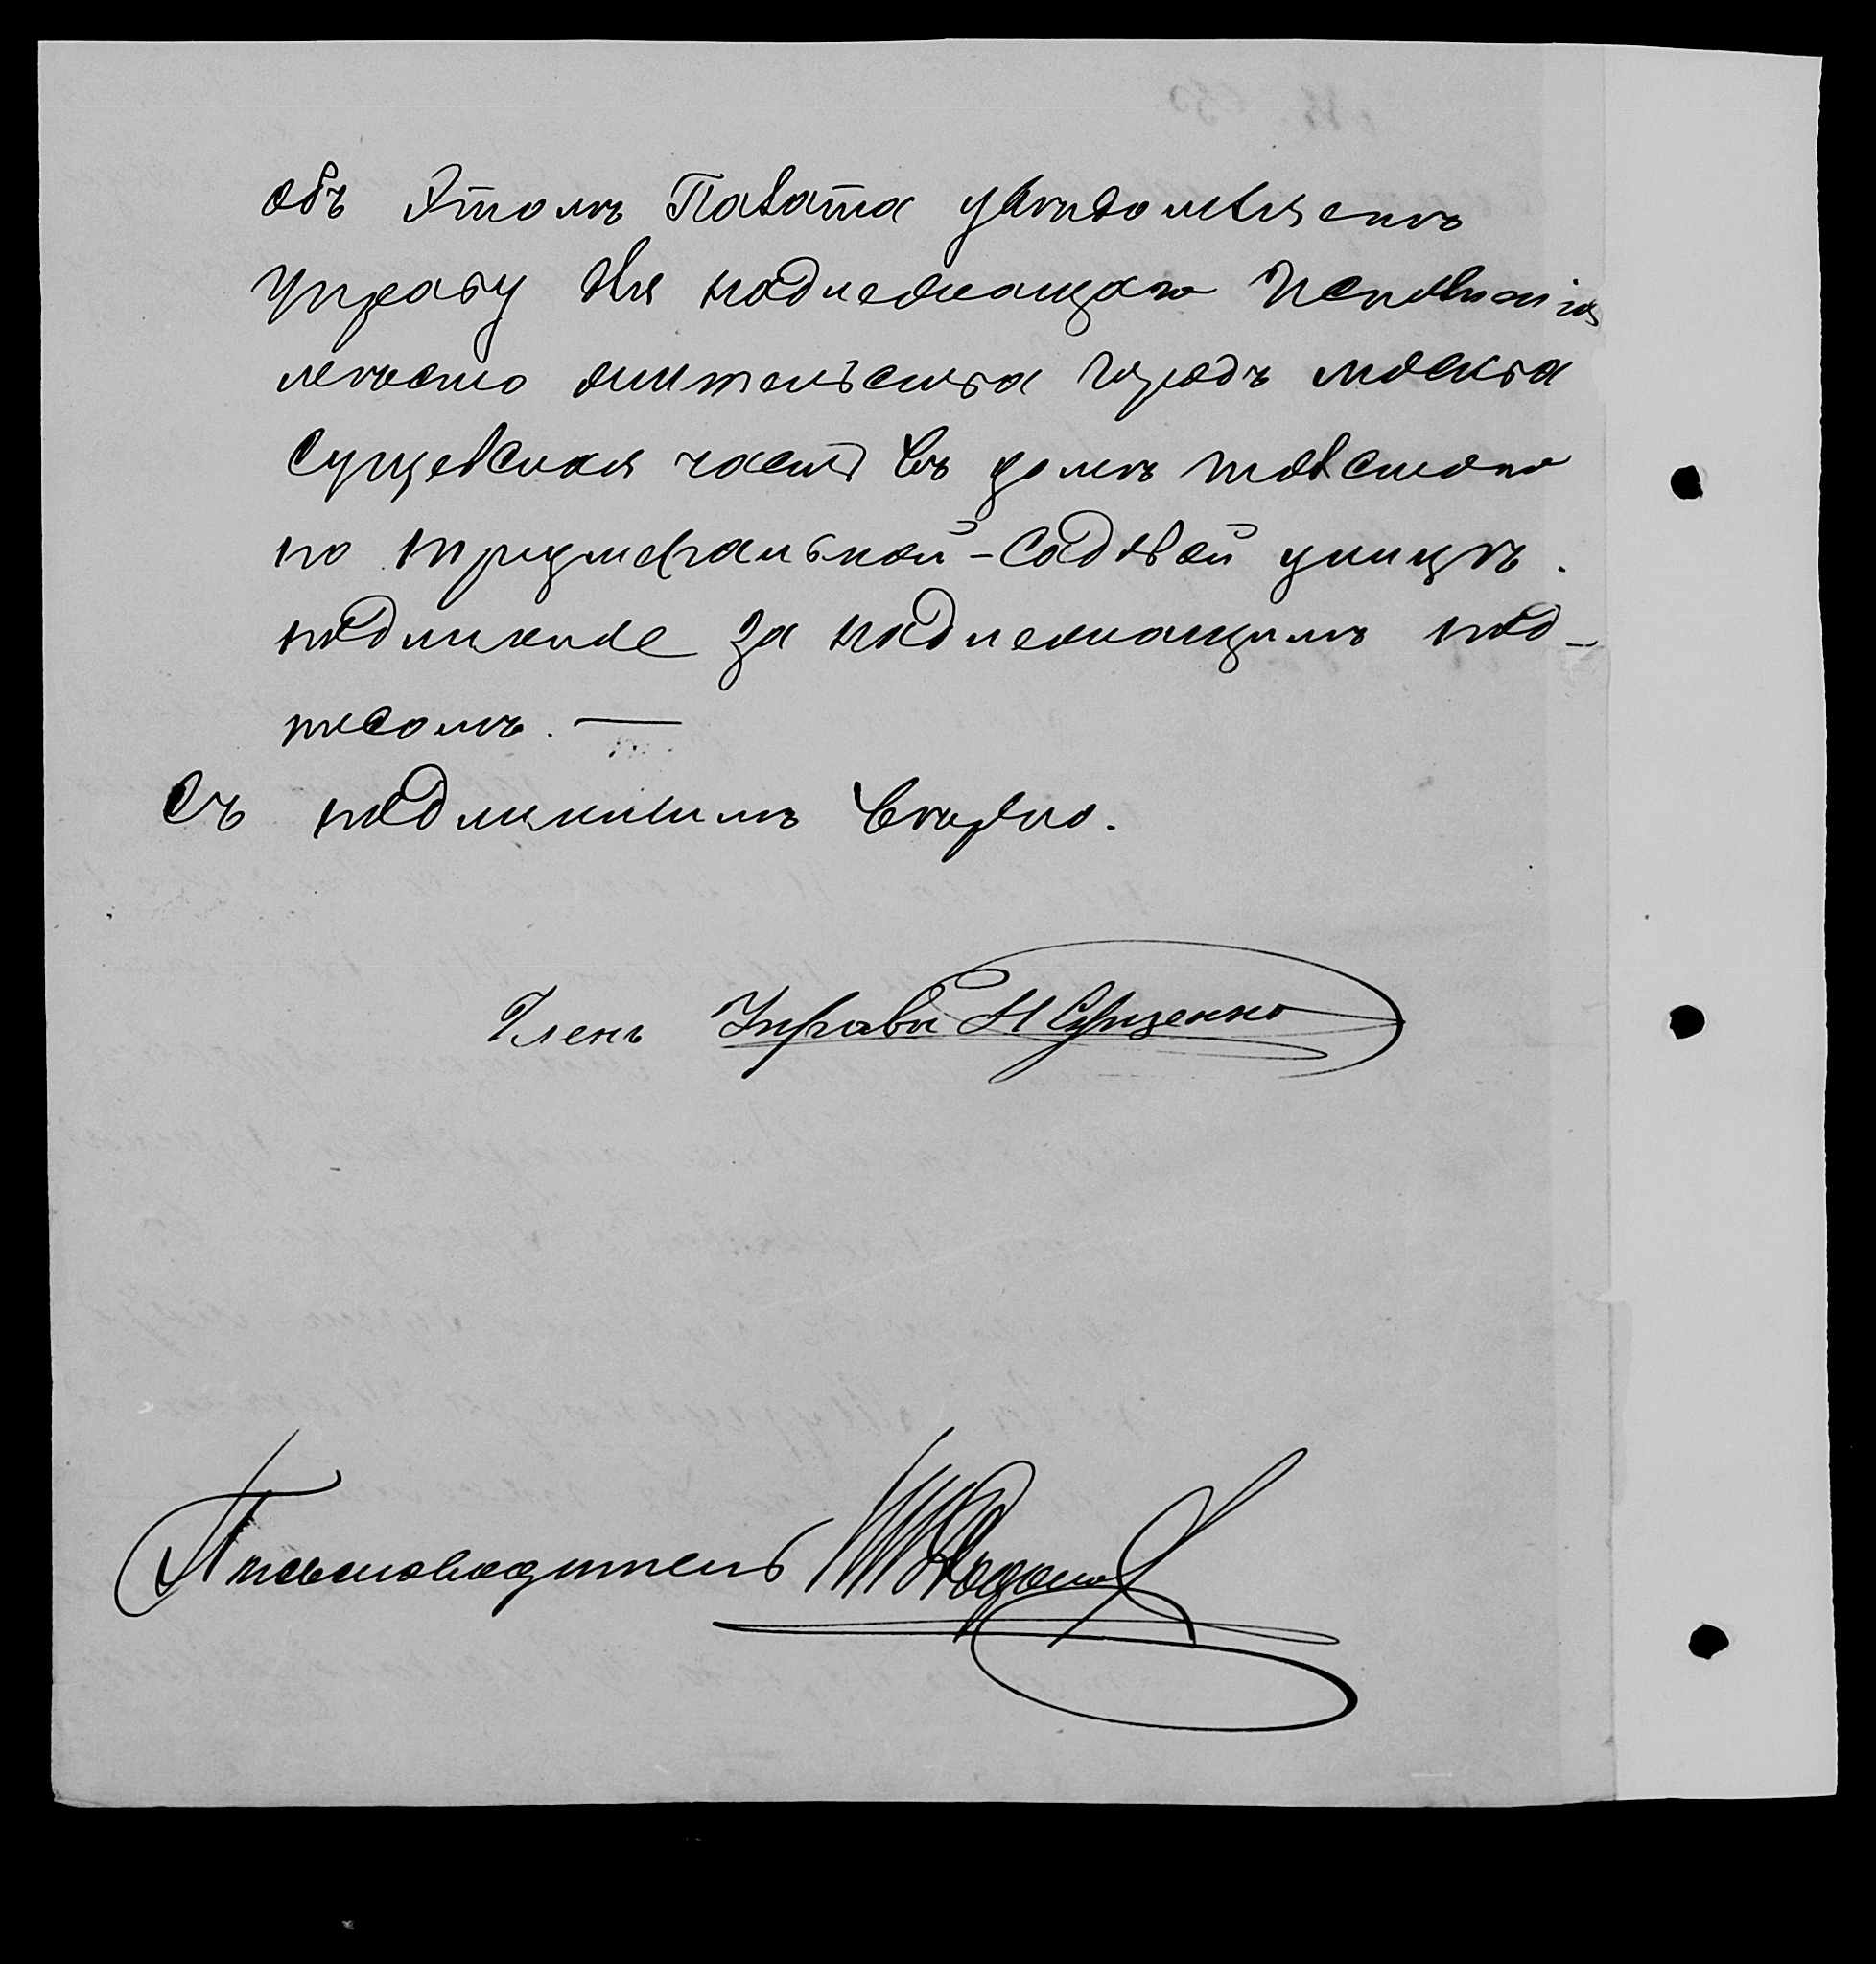 объ Этомъ Палата увѣдомляетъ
Управу для надлежащаго Исполненія
мѣсто жительства городъ москва
Сущевская часть въ домѣ толстого
по триумфальной-Садовой улицѣ.
подлинное за надлежащимъ под-
писомъ. —
Съ подлиннымъ вѣрно.
Членъ Управы Н Сущенко
Письмоводитель